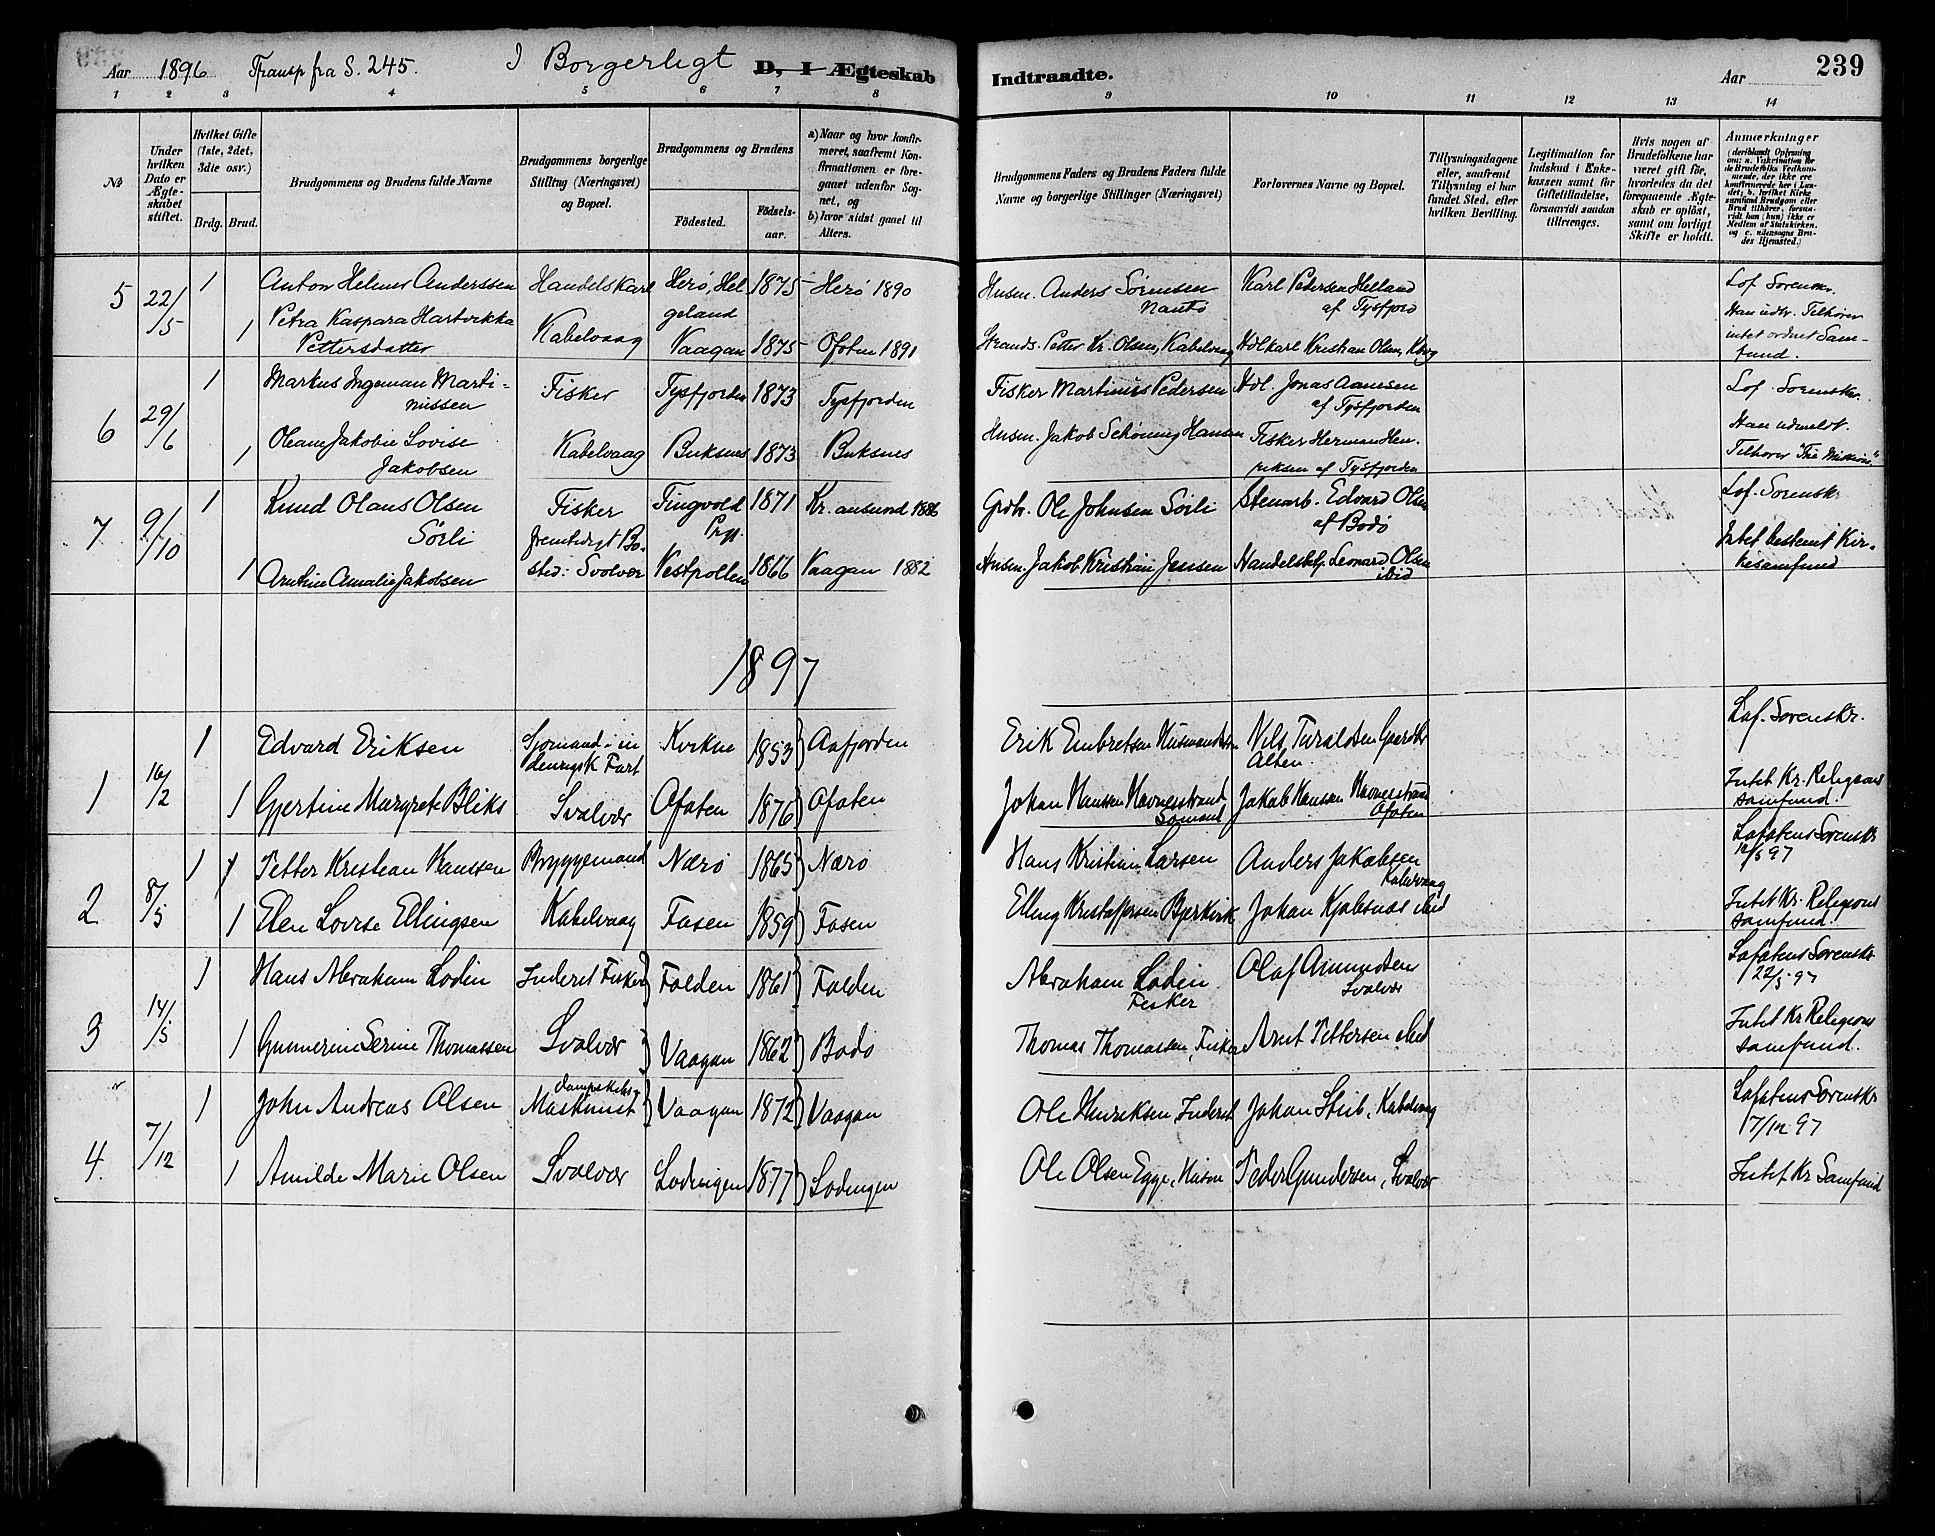 Aar 1896 Transp fra S. 245. I Borgerligt D, I Ægteskab
Indtraadte. Aar 239
1 2 3 4 5 6 7 8
9 10 11 12 13 14
No.
Under hvilken Dato er Ægteskabet stiftet.
Hvilket Gifte (1ste, 2det, 3die osv.)
Brdg. Brud.
Brudgommens og Brudens fulde Navne
Brudgommens borgerlige Stilling (Næringsvei) og Bopæl.
Brudgommens og Brudens
Fødested. Fødselsaar.
a) Naar og hvor konfirmeret, saafremt Konfirmationen er foregaaet udenfor Sognet, og
b) hvor sidst gaaet til Alters.
Brudgommens Faders og Brudens Faders fulde Navne og borgerlige Stillinger (Næringsvei)
Forlovernes Navne og Bopæl.
Tillysningsdagene eller, saafremt Tillysning ei har fundet Sted, efter hvilken Bevilling.
Legitimation for Indskud i Enkekassen samt for Giftetilladelse, forsaavidt saadan tiltrænges.
Hvis nogen af Brudefolkene har været gift før, hvorledes da det foregaaende Ægteskab er opløst, samt om lovligt Skifte er holdt.
Anmærkninger
5 22/5 1 Anton Helmer Anderssen Handelskarl Herø, Helgeland 1875 Herø 1890 Husm. Anders Sørensen Karl Pedersen Helland af Tysfjord Lof. Sorenskr.
1 Petra Kaspara Hartvikka Pettersdatter Kabelvaag Vaagan 1875 Ofoten 1891 Strands. Petter Kr. Olsen, Kabelvaag Hdlkarl Kristian Olsen, Kbvg Han udtr. Tilhører intet ordnet Samfund.
6 29/6 1 Markus Ingeman Martinussen Fisker Tysfjorden 1873 Tysfjorden Fisker Martinus Pedersen Hdl. Jonas Aanesen af Tysfjorden Lof. Sorenskr.
1 Oleane Jakobie Lovise Jakobsen Kabelvaag Buksnes 1873 Buksnes Husm. Jakob Schøning Hansen Fisker Herman Henriksen af Tysfjorden Han udmeldt. Tilhører "Fri Mission"
7 9/10 1 Knud Olaus Olsen Sørli Fisker Tingvold Prgj. 1871 Kr.ansund 1886 Grdbr. Ole Johnsen Sørli Stenarb. Edvard Olsen af Bodø Lof. Sorenskr.
1 Arntine Amalie Jakobsen fremtidigt Bosted: Svolvær Vestpollen 1866 Vaagan 1882 Husm. Jakob Kristian Jensen Handelsbetj. Leonard Olsen ibid Intet bestemt Kirkesamfund
1897
1 16/2 1 Edvard Eriksen Sjømand i indenrigsk Fart Kvikne 1853 Aafjorden Erik Embretsen Husmand Nils Turaldsen Gaardbr Alten. Lof. Sorenskr.
1 Gjertine Margrete Bliks Svolvær Ofoten 1876 Ofoten Johan Hansen Havnerstrand Sømand Jakob Hansen Havnerstrand Ofoten Intet Kr. Religionssamfund.
2 8/5 1 Petter Kristian Hanssen Bryggemand Nærø 1865 Nærø Hans Kristian Larsen Anders Jakobsen Kabelvaag Lofotens Sorenskr 12/5 97
1 Elen Lovise Ellingsen Kabelvaag Fosen 1859 Fosen Elling Kristoffersen Bjerkvik Johan Kjelsnæs ibid Intet Kr. Religionssamfund.
3 14/5 1 Hans Abraham Lodin Inderst Fisker Folden 1861 Folden Abraham Lodin Fisker Olaf Amundsen Svolvær Lofotens Sorenskr. 22/5 97
1 Gunnerine Serine Thomassen Svolvær Vaagan 1862 Bodø Thomas Thomassen, Fisker Arnt Pettersen ibid Intet Kr Religionssamfund.
4. 7/12 1 John Andreas Olsen Dampskibs Maskinist Vaagan 1872 Vaagan Ole Henriksen Inderst Johan Stub, Kabelvaag Lofotens Sorenskr 17/12 97
1 Amilde Marie Olsen Svolvær Lødingen 1877 Lødingen Ole Olsen Egge, Husm Peder Gundersen, Svolvær Intet Kr Samfund